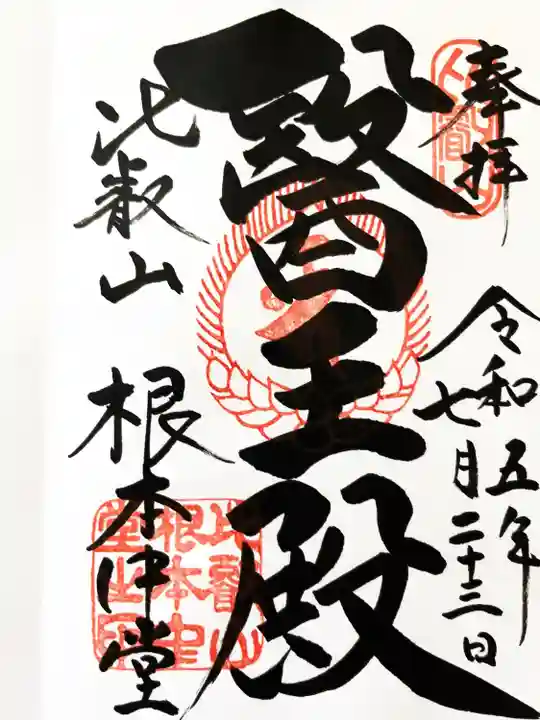 奉拝
令和五年
七月二十三日
醫王殿
比叡山 根本中堂
比叡山
根本中
堂之印